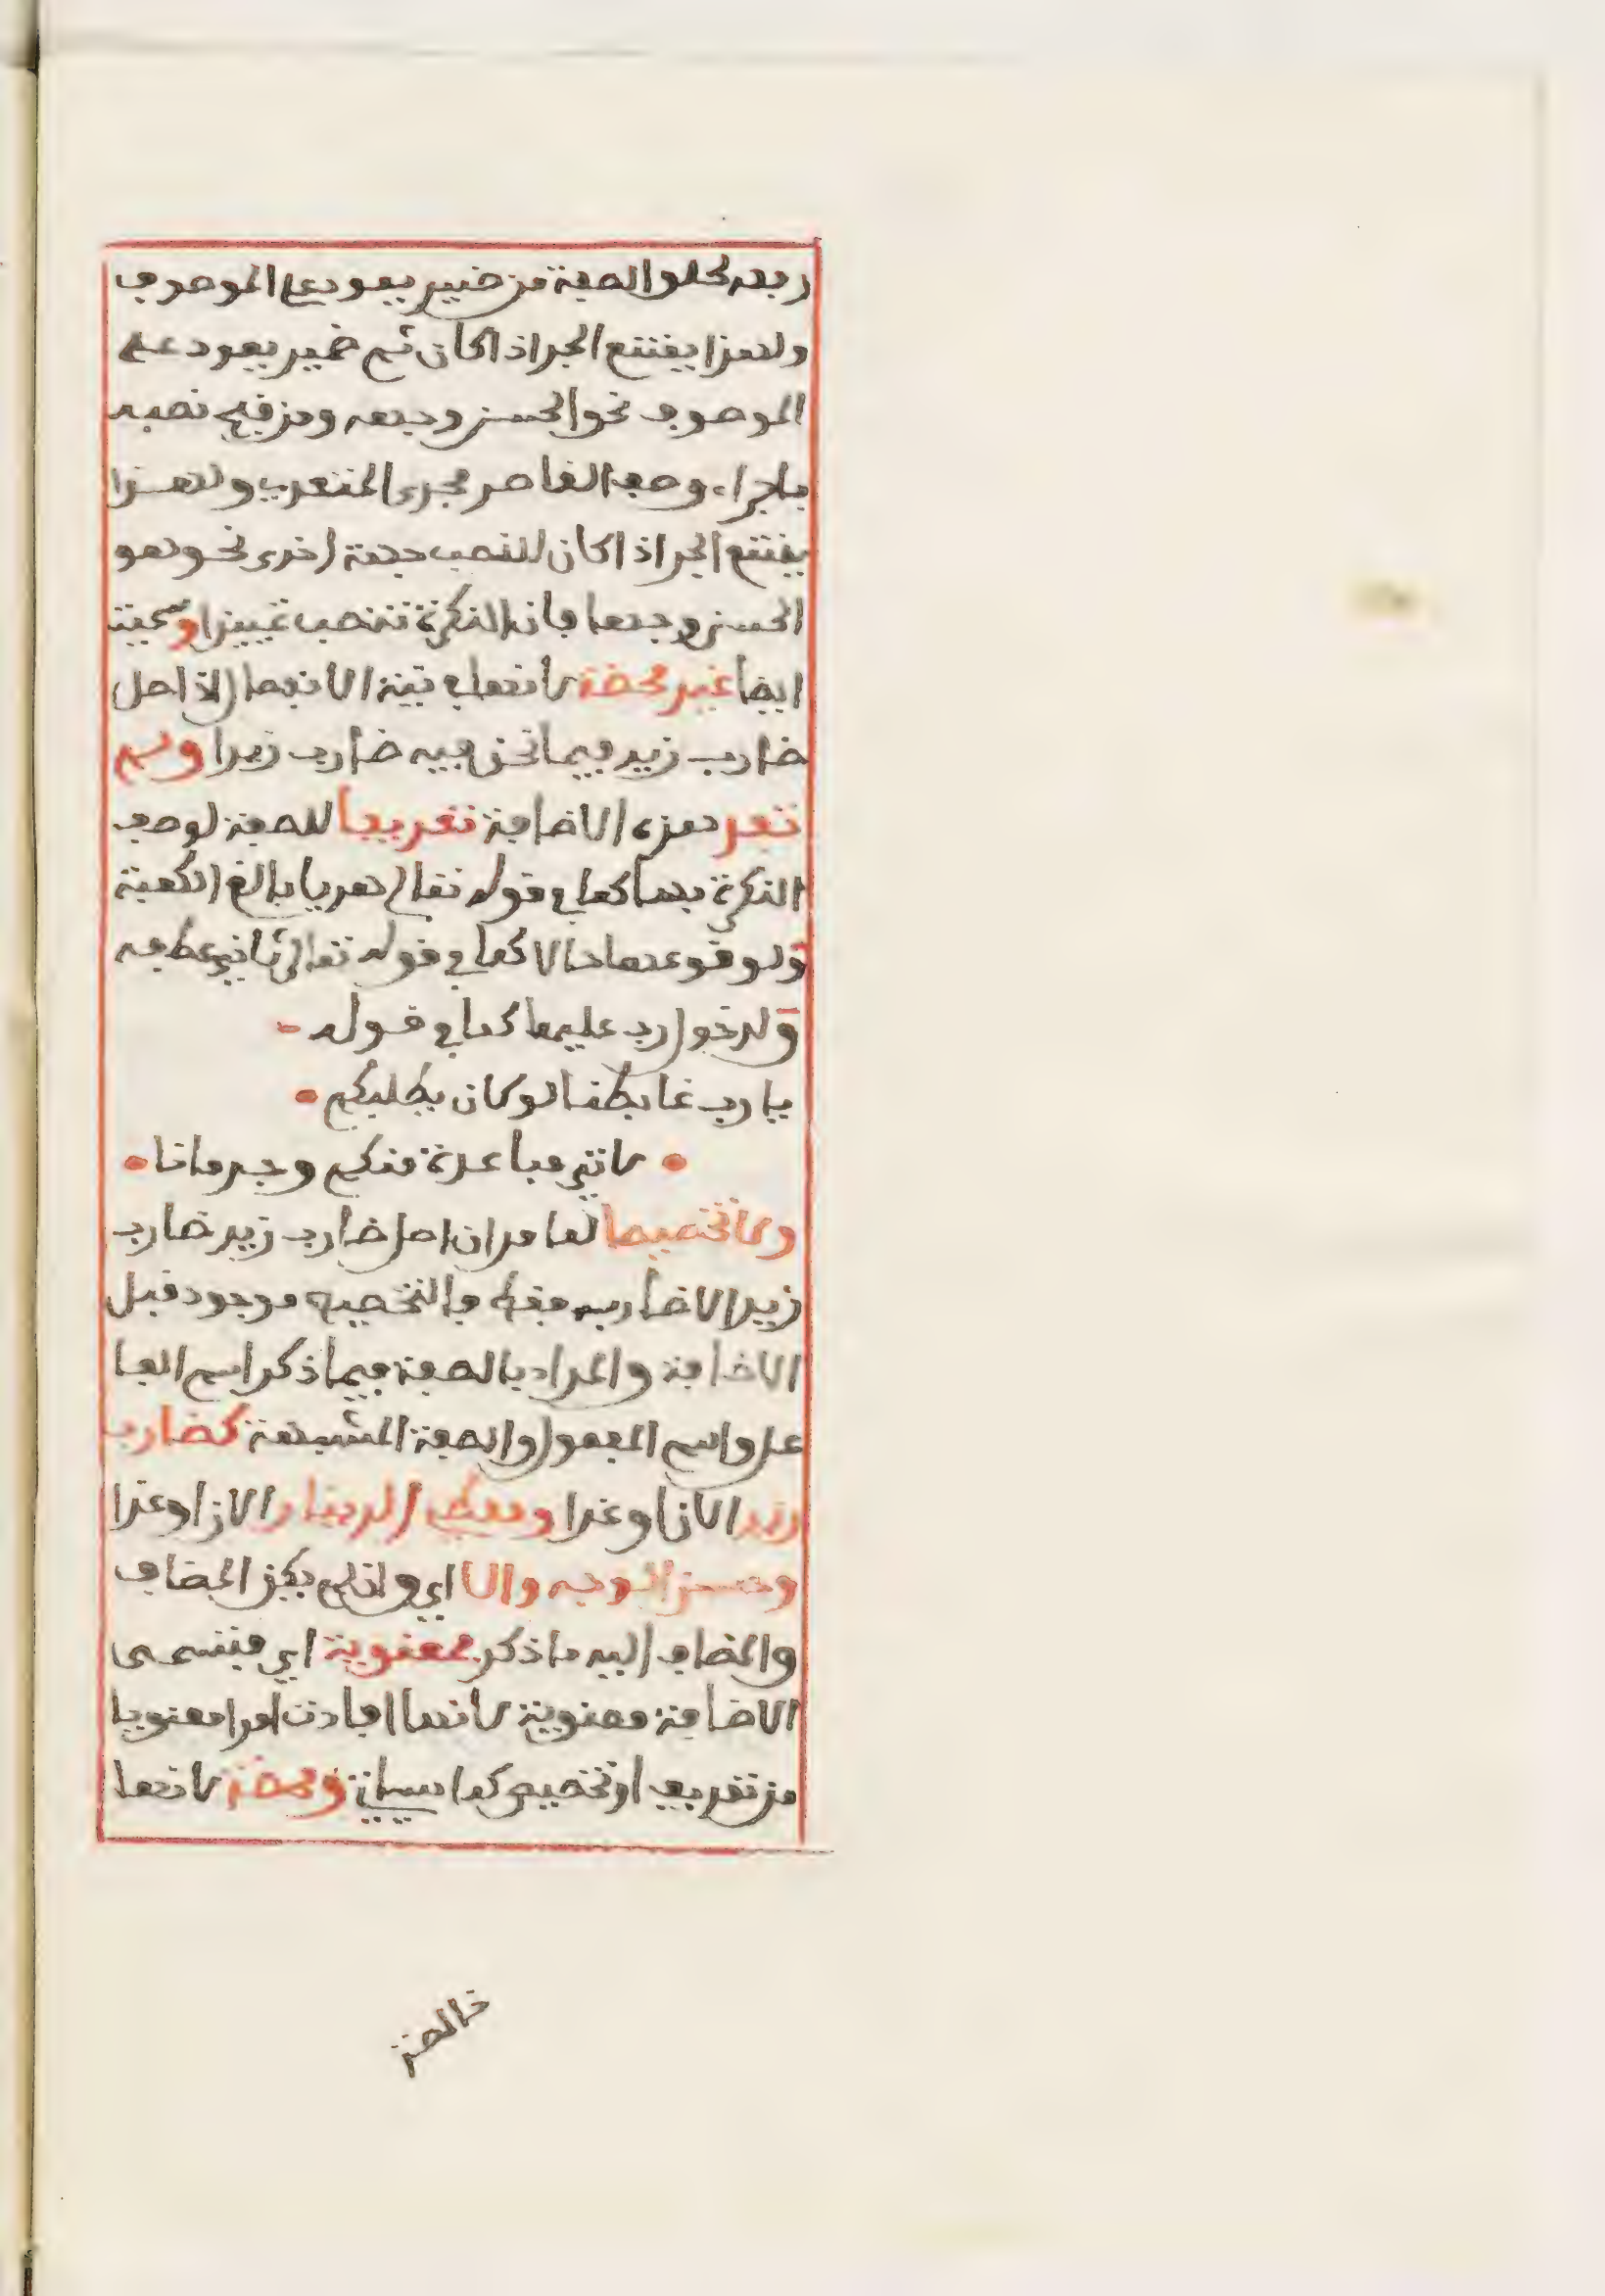 رفعه لخلو الصفة من ضمير يعود على الموصوف
ولهذا يمتنع الجر اذا كان ثم ضمير يعود على
الموصوف نحو الحسن وجهه ومن قبح نصبه
باجراء وصف القاصر مجرى المتعدي ولهذا
يمتنع الجر اذا كان للنصب جهة اخرى نحو هو
الحسن وجها فان النكرة تنتصب تمييزا وسميت
ايضا غير محضة لانها في نية الانفصال اذ اصل
ضارب زيد فيما نحن فيه ضارب زيدا ولم
تفد هذه الاضافة تعريفا للصفة لوصف
النكرة بها كما في قوله تعالى هديا بالغ الكعبة
ولوقوعها حالا كما في قوله تعالى ثاني عطفه
ولدخول رب عليها كما في قوله
يا رب غابطنا لو كان يطلبكم
لاقى مباعدة منكم وحرمانا
ولا تخصيصا لها مر ان اصل ضارب زيد ضارب
زيدا لا ضارب فقط فالتخصيص موجود قبل
الاضافة والمراد بالصفة فيما ذكر اسم الفا
عل واسم المفعول والصفة المشبهة كضارب
زيد الان او غدا ومعطى الدينار الان او غدا
وحسن الوجه والا اي وان لم يكن المضاف
والمضاف اليه ما ذكر فمعنوية اي فتسمى
الاضافة معنوية لانها افادت امرا معنويا
من تعريف او تخصيص كما سياتي ومحضة لانها
خالصة